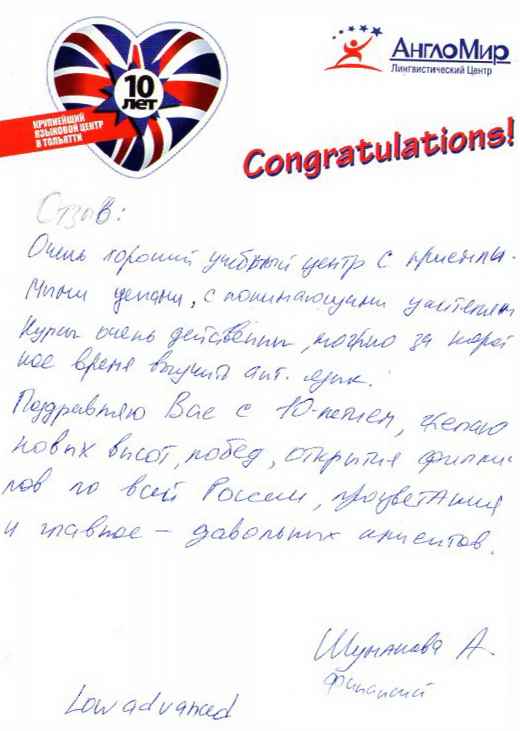 10
ЛЕТ
КРУПНЕЙШИЙ
ЯЗЫКОВОЙ ЦЕНТР
В ТОЛЬЯТТИ
АнглоМир
Лингвистический Центр
Congratulations!
Отзыв:
Очень хороший учебный центр с приемле-
мыми ценами, с понимающими учителями
Курсы очень действенны, можно за корот
кое время выучить анг. язык.
Поздравляю Вас с 10-летием, желаю
новых высот, побед, открытия филиа-
лов по всей России, процветания
и главное – давольных клиентов.
А.
Low advanced